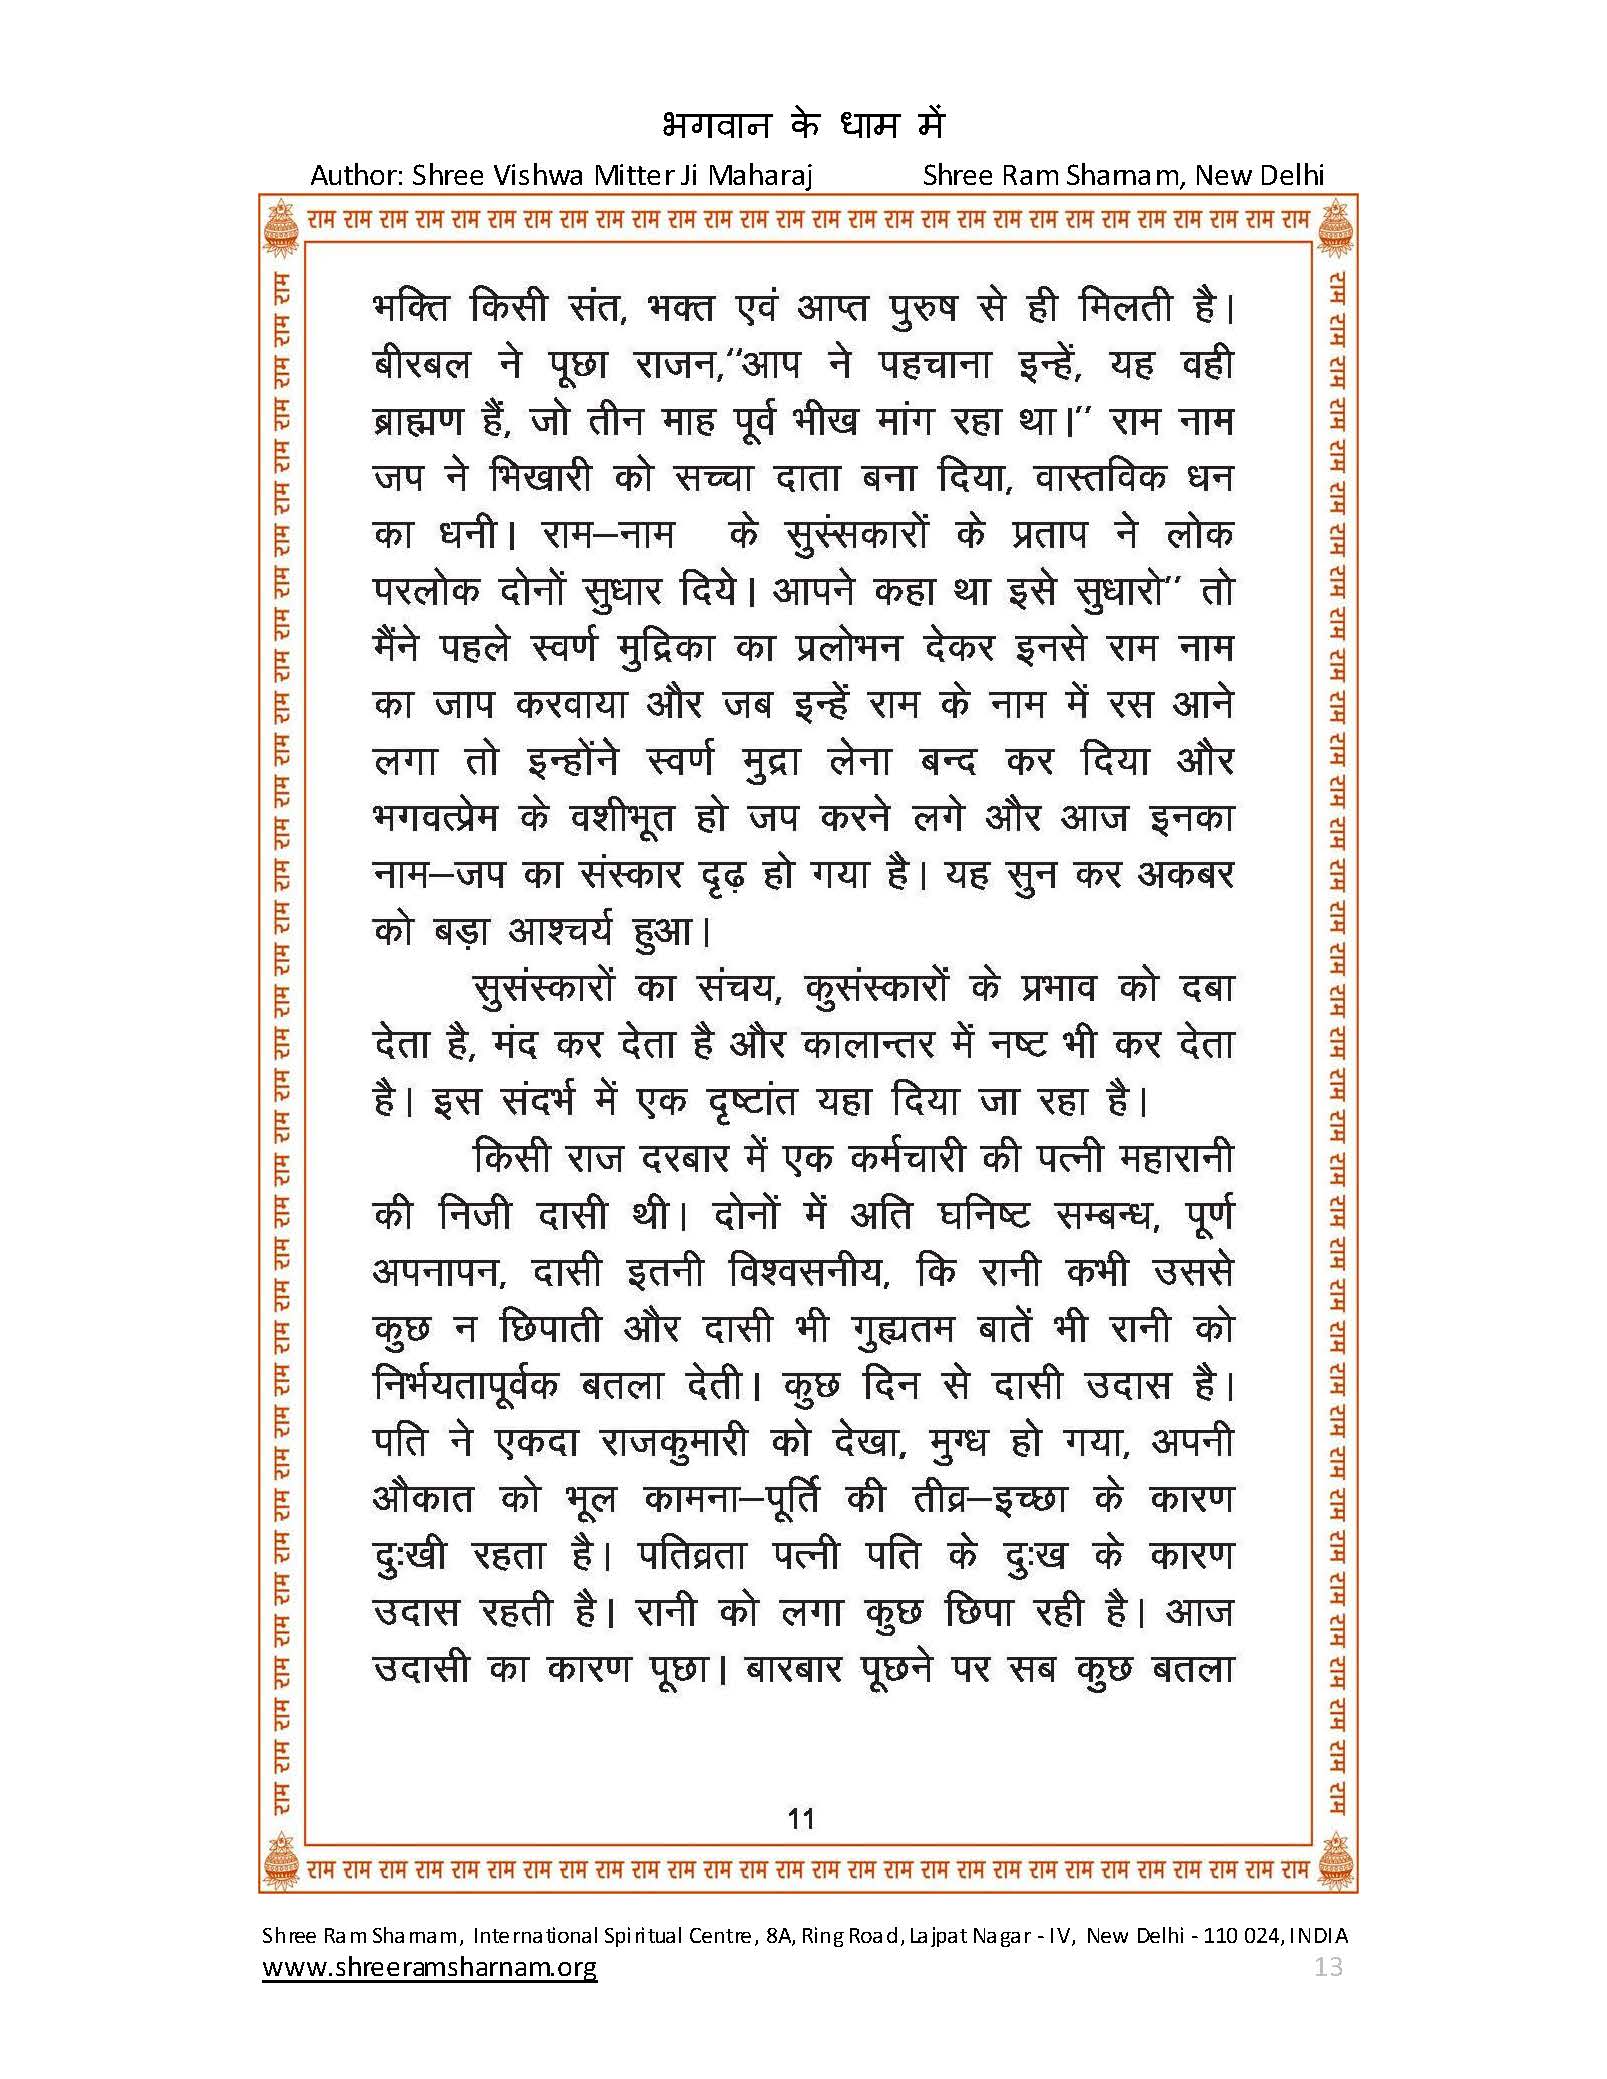 भगवान के धाम में
Author: Shree Vishwa Mitter Ji Maharaj Shree Ram Sharnam, New Delhi
राम राम राम राम राम राम राम राम राम राम राम राम राम राम राम राम राम राम राम राम राम राम राम राम राम राम राम राम
भक्ति किसी संत, भक्त एवं आप्त पुरुष से ही मिलती है।
बीरबल ने पूछा राजन,‘‘आप ने पहचाना इन्हें, यह वही
ब्राह्मण हैं, जो तीन माह पूर्व भीख मांग रहा था।’’ राम नाम
जप ने भिखारी को सच्चा दाता बना दिया, वास्तविक धन
का धनी। राम–नाम के सुसंसकारों के प्रताप ने लोक
परलोक दोनों सुधार दिये। आपने कहा था इसे सुधारो’’ तो
मैंने पहले स्वर्ण मुद्रिका का प्रलोभन देकर इनसे राम नाम
का जाप करवाया और जब इन्हें राम के नाम में रस आने
लगा तो इन्होंने स्वर्ण मुद्रा लेना बन्द कर दिया और
भगवत्प्रेम के वशीभूत हो जप करने लगे और आज इनका
नाम–जप का संस्कार दृढ़ हो गया है। यह सुन कर अकबर
को बड़ा आश्चर्य हुआ।
सुसंस्कारों का संचय, कुसंस्कारों के प्रभाव को दबा
देता है, मंद कर देता है और कालान्तर में नष्ट भी कर देता
है। इस संदर्भ में एक दृष्टांत यहा दिया जा रहा है।
किसी राज दरबार में एक कर्मचारी की पत्नी महारानी
की निजी दासी थी। दोनों में अति घनिष्ट सम्बन्ध, पूर्ण
अपनापन, दासी इतनी विश्वसनीय, कि रानी कभी उससे
कुछ न छिपाती और दासी भी गुह्यतम बातें भी रानी को
निर्भयतापूर्वक बतला देती। कुछ दिन से दासी उदास है।
पति ने एकदा राजकुमारी को देखा, मुग्ध हो गया, अपनी
औकात को भूल कामना–पूर्ति की तीव्र–इच्छा के कारण
दुःखी रहता है। पतिव्रता पत्नी पति के दुःख के कारण
उदास रहती है। रानी को लगा कुछ छिपा रही है। आज
उदासी का कारण पूछा। बारबार पूछने पर सब कुछ बतला
11
राम राम राम राम राम राम राम राम राम राम राम राम राम राम राम राम राम राम राम राम राम राम राम राम राम राम राम राम
Shree Ram Sharnam, International Spiritual Centre, 8A, Ring Road, Lajpat Nagar - IV, New Delhi - 110 024, INDIA
www.shreeramsharnam.org 13